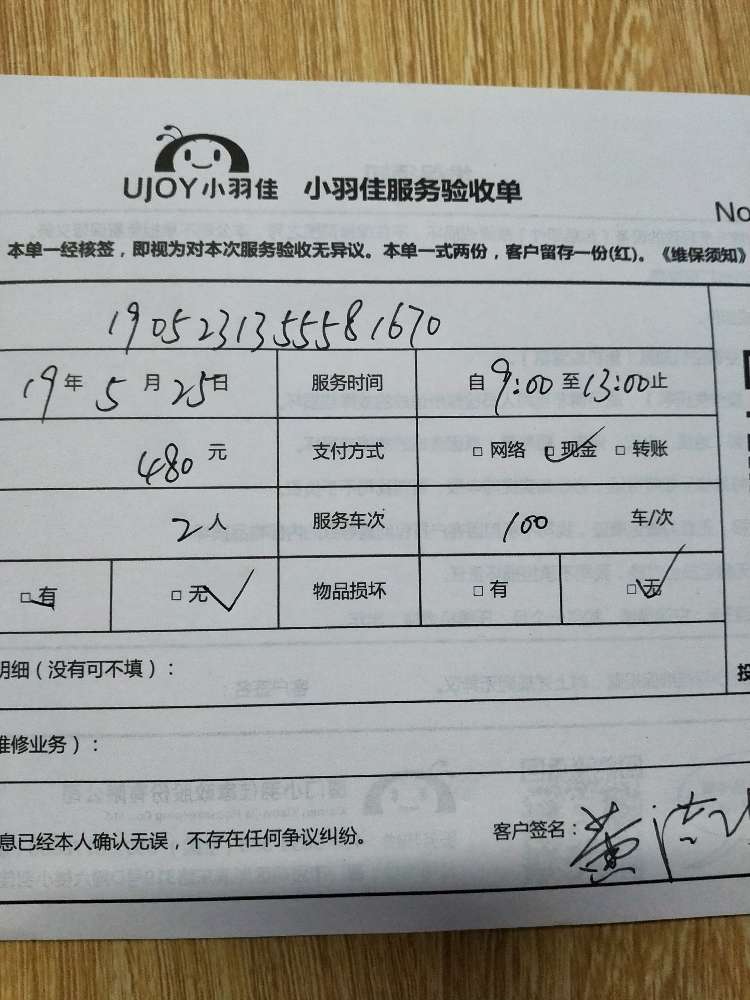 UJOY小羽佳 小羽佳服务验收单
No
本单一经核签，即视为对本次服务验收无异议。本单一式两份，客户留存一份(红)。《维保须知》
1905231355581670
19年5月25日 服务时间 自9:00至13:00止
480元 支付方式 □ 网络 □ 现金 □ 转账
2人 服务车次 100 车/次
□ 有 □ 无 物品损坏 □ 有 □ 无
明细（没有可不填）：
投
维修业务）：
息已经本人确认无误，不存在任何争议纠纷。
客户签名：黄